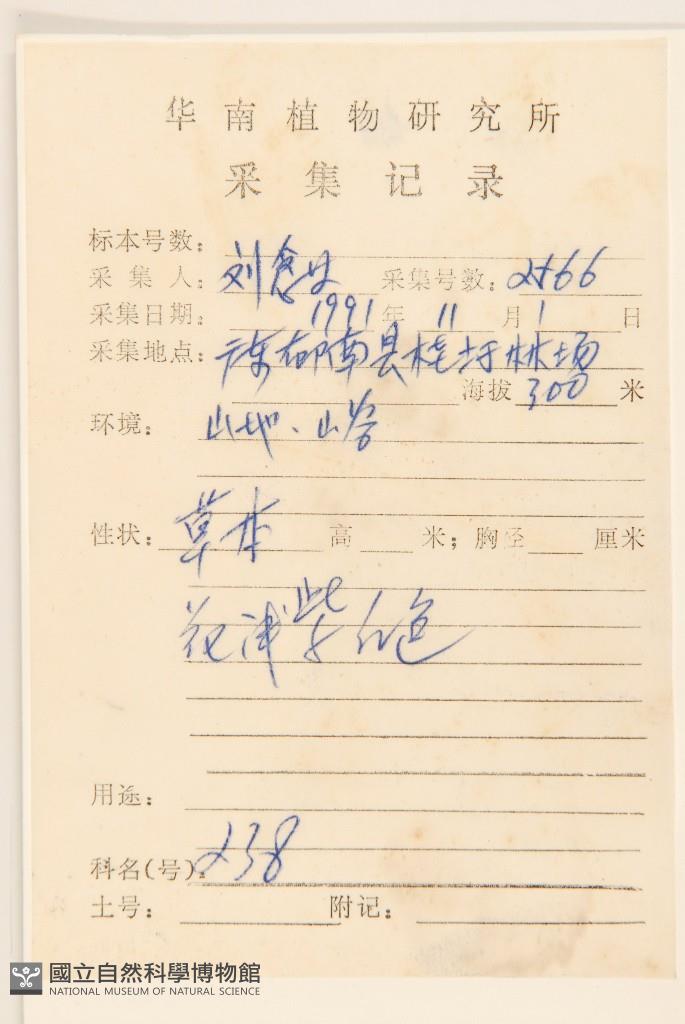 华南植物研究所
采集记录
标本号数：
采集人：刘念 采集号数：2566
采集日期：1991年11月1日
采集地点：广东郁南县桂圩林场
海拔300米
环境：山地、山谷
性状：草本 高 米；胸径 厘米
花 紫 色
用途：
科名(号)：238
土号： 附记：
國立自然科學博物館
NATIONAL MUSEUM OF NATURAL SCIENCE